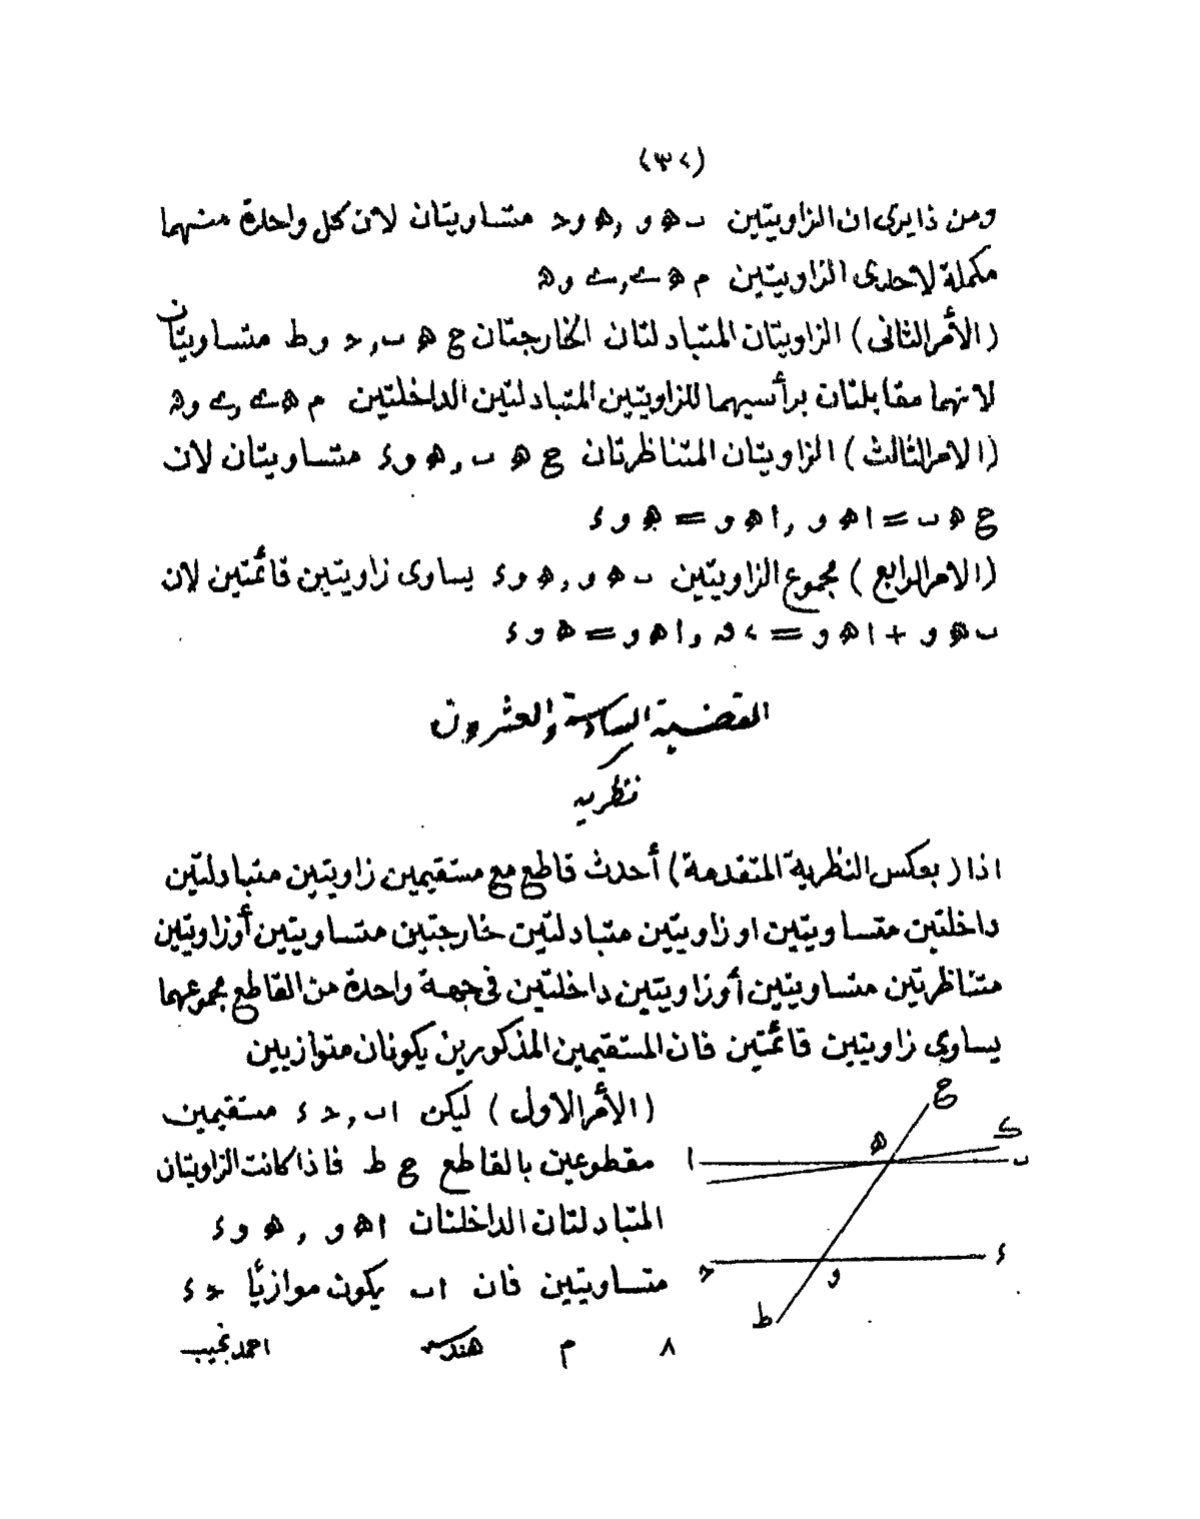 (٣٢)
ومن ذا يرى ان الزاويتين ٮ ه و , ه و د متساويتان لان كل واحدة منهما
مكملة لاحدى الزاويتين م ه ے , ے و ه
(الأمر الثانى) الزاويتان المتبادلتان الخارجتان ح ه ٮ , د و ط متساويتان
لانهما مقابلتان برأسيهما للزاويتين المتبادلتين الداخلتين م ه ے , ے و ه
(الامر الثالث) الزاويتان المتناظرتان ح ه ٮ , ه و ء متساويتان لان
ح ه ٮ = ا ه و , ا ه و = ه و ء
(الامر الرابع) مجموع الزاويتين ٮ ه و , ه و ء يساوى زاويتين قائمتين لان
ٮ ه و + ا ه و = ٢ ق , ا ه و = ه و ء
القضية السادسة والعشرون
نظرية
اذا (بعكس النظرية المتقدمة) أحدث قاطع مع مستقيمين زاويتين متبادلتين
داخلتين متساويتين او زاويتين متبادلتين خارجتين متساويتين أو زاويتين
متناظرتين متساويتين أو زاويتين داخلتين فى جهة واحدة من القاطع مجموعهما
يساوى زاويتين قائمتين فان المستقيمين المذكورين يكونان متوازيين
(الأمر الاول) ليكن اٮ , د ء مستقيمين
مقطوعين بالقاطع ح ط فاذا كانت الزاويتان
المتبادلتان الداخلتان ا ه و , ه و ء
متساويتين فان اٮ يكون موازيًا د ء
ح
ك
ه
ا
ٮ
ء
د
و
ط
٨ م هندسه احمد نجيب